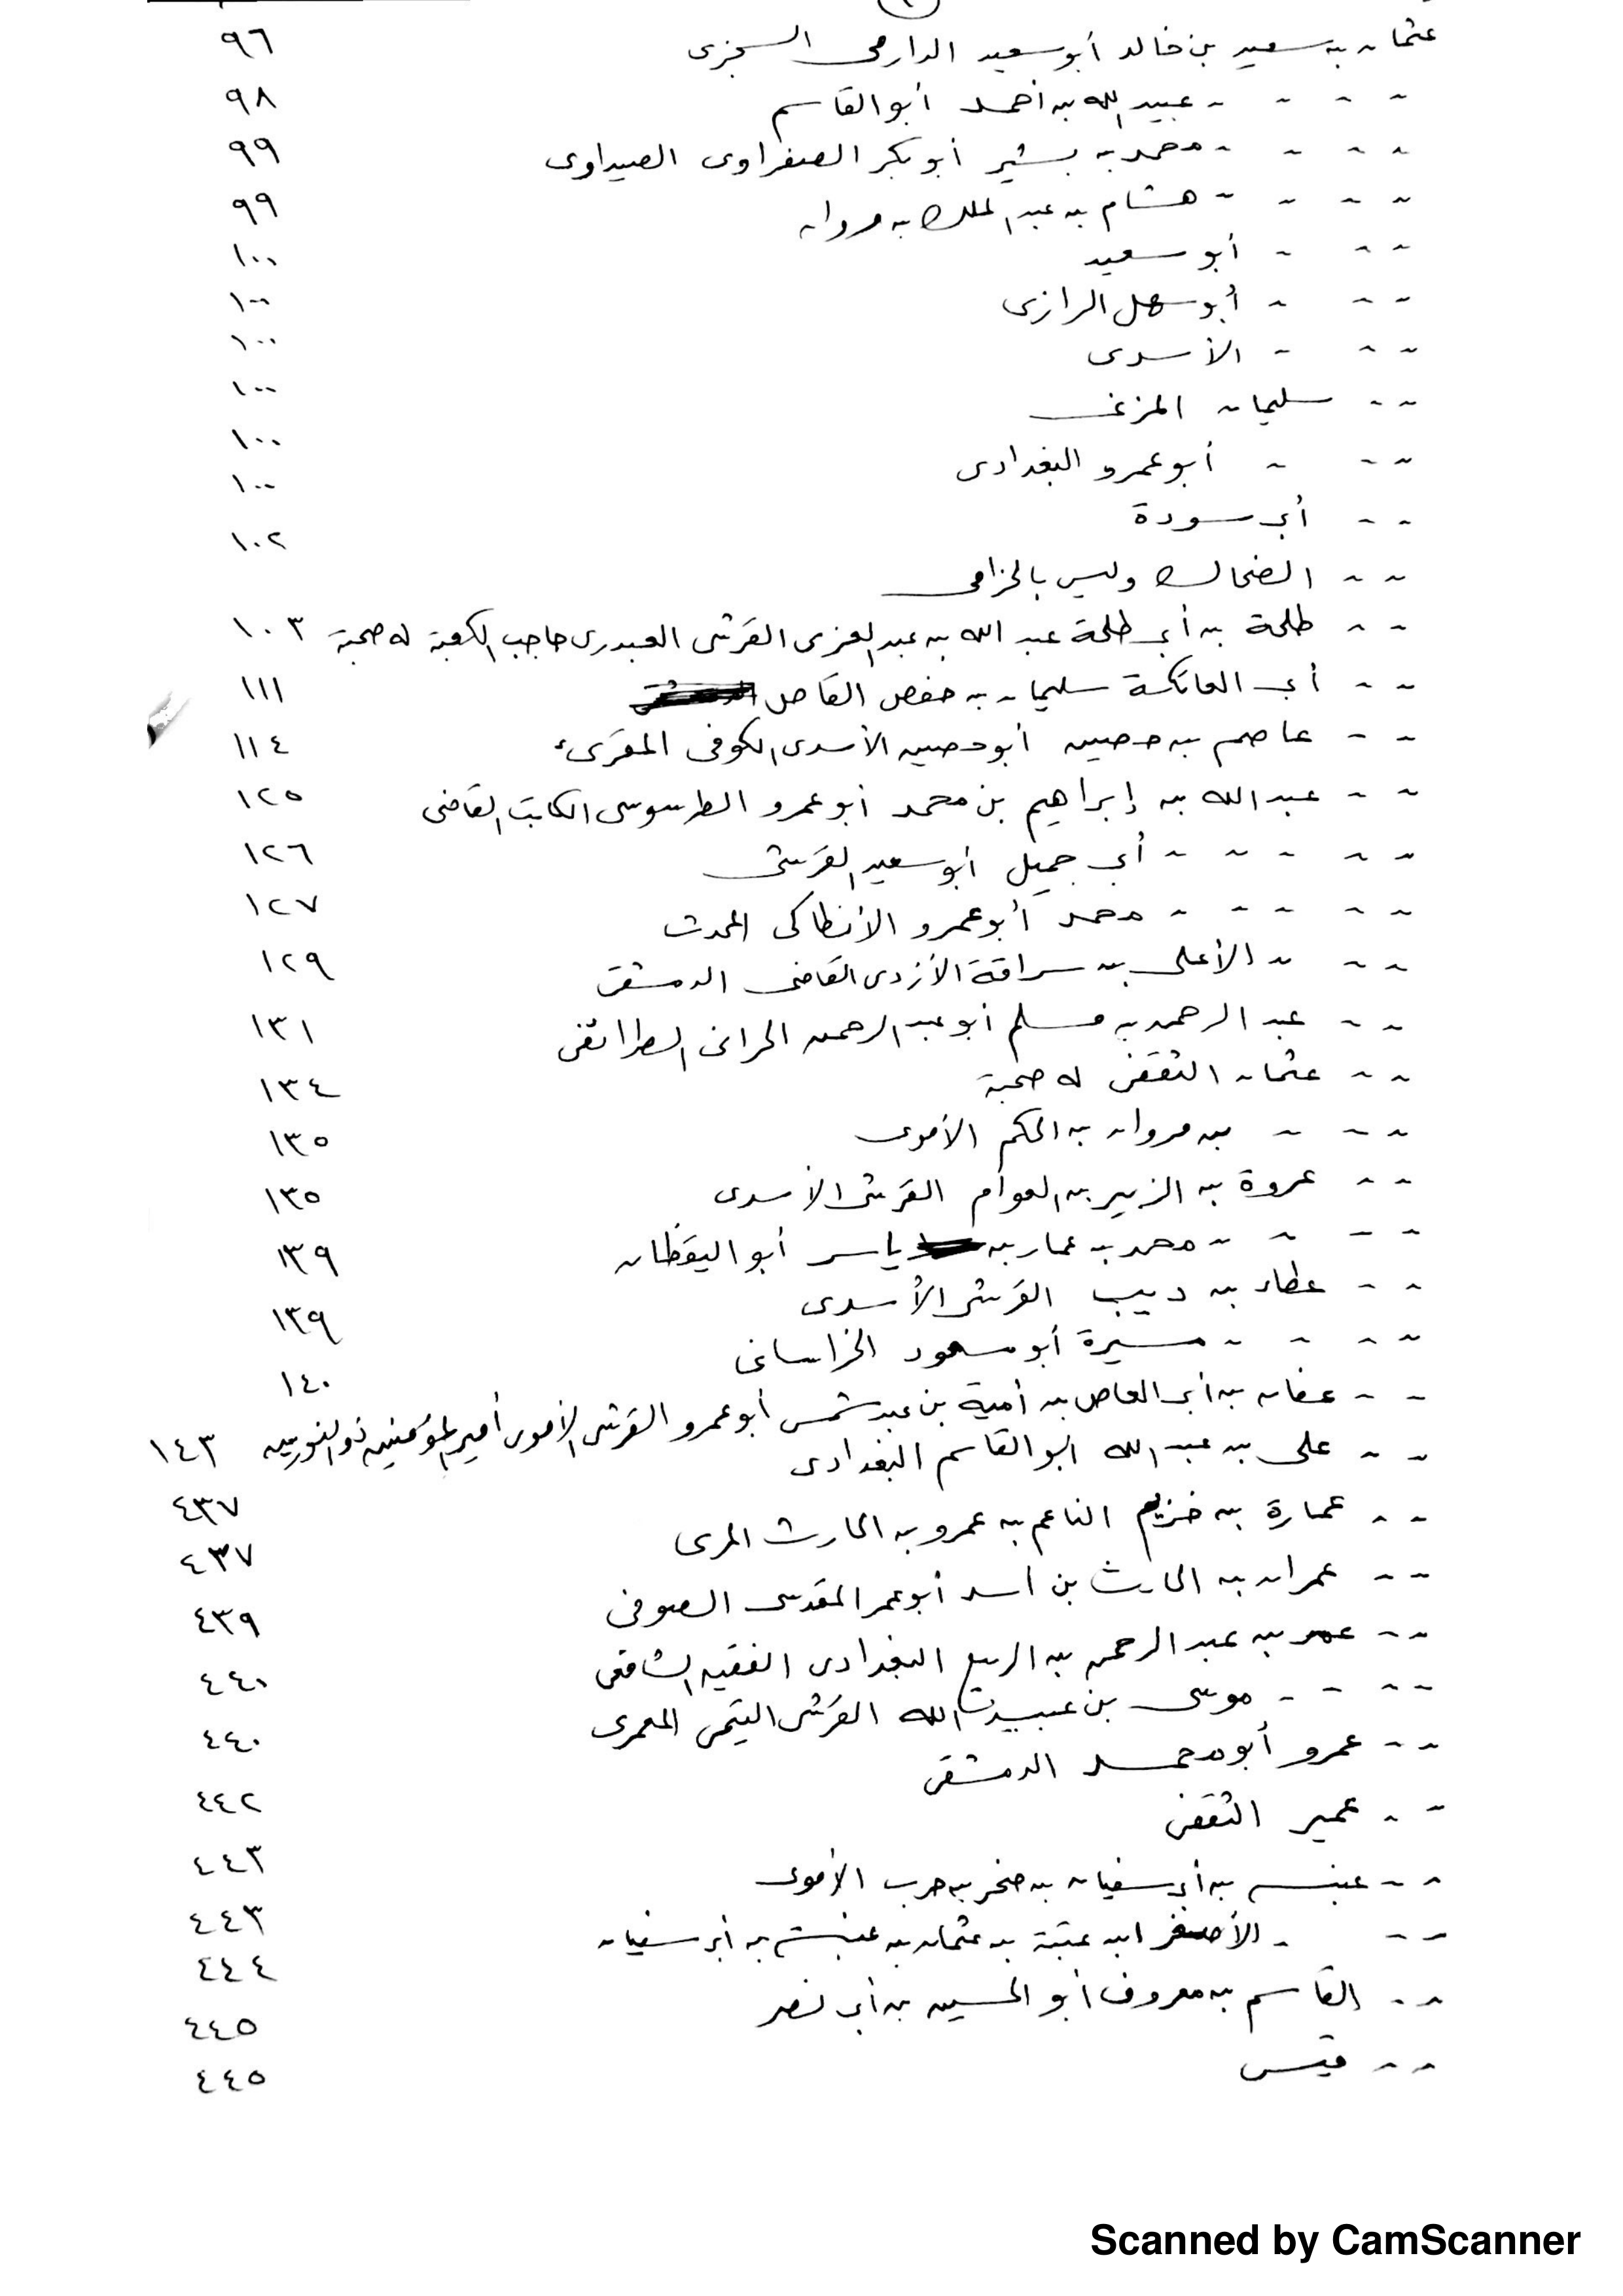 ٢
عثمان بن سعيد بن خالد أبو سعيد الدارمى السجزى ٩٦
~ ~ ~ ~ عبيد الله بن أحمد أبو القاسم ٩٨
~ ~ ~ ~ محمد بن بشير أبو بكر الصفراوى الصيداوى ٩٩
~ ~ ~ ~ هشام بن عبد الملك بن مروان ٩٩
~ ~ ~ أبو سعيد ١٠٠
~ ~ ~ أبو سهل الرازى ١٠٠
~ ~ ~ الأسدى ١٠٠
~ ~ سليمان المزنى ١٠٠
~ ~ ~ أبو عمرو البغدادى ١٠٠
~ ~ أبى سودة ١٠٠
~ ~ الضحاك وليس بالحزامى ١٠٢
~ ~ طلحة بن أبى طلحة عبد الله بن عبد العزى القرشى العبدرى حاجب الكعبة له صحبة ١٠٣
~ ~ أبى العاتكة سليمان بن حفص القاص ١١١
~ ~ عاصم بن حصين أبو حصين الأسدى الكوفى المقرىء ١١٤
~ ~ عبد الله بن إبراهيم بن محمد أبو عمرو الطرسوسى الكاتب القاضى ١٢٥
~ ~ ~ ~ ~ أبى جميل أبو سعيد القرشى ١٢٦
~ ~ ~ ~ ~ محمد أبو عمرو الأنطاكى المحدث ١٢٧
~ ~ ~ الأعلى بن سراقة الأزدى القاضى الدمشقى ١٢٩
~ ~ عبد الرحمن بن مسلم أبو عبد الرحمن الحرانى الطرائفى ١٣١
~ ~ عثمان الثقفى له صحبة ١٣٤
~ ~ ~ بن مروان بن الحكم الأموى ١٣٥
~ ~ عروة بن الزبير بن العوام القرشى الأسدى ١٣٥
~ ~ ~ ~ محمد بن عمار بن ياسر أبو اليقظان ١٣٩
~ ~ عطاء بن ديب القرشى الأسدى ١٣٩
~ ~ ~ ~ ميسرة أبو مسعود الخراسانى ١٤٠
~ ~ عفان بن أبى العاص بن أمية بن عبد شمس أبو عمرو القرشى الأموى أمير المؤمنين ذو النورين ١٤٣
~ ~ على بن عبد الله أبو القاسم البغدادى ٤٣٧
~ ~ عمارة بن خزيم الناعم بن عمرو بن الحارث المرى ٤٣٧
~ ~ عمران بن الحارث بن أسد أبو عمر المقدسى الصوفى ٤٣٩
~ ~ عمر بن عبد الرحمن بن الربيع البغدادى الفقيه الشافعى ٤٤٠
~ ~ ~ ~ موسى بن عبيد الله القرشى التيمى المعمرى ٤٤٠
~ ~ عمرو أبو محمد الدمشقى ٤٤٢
~ ~ عمير الثقفى ٤٤٣
~ ~ عنبسة بن أبى سفيان بن صخر بن حرب الأموى ٤٤٣
~ ~ ~ الأصغر ابن عتبة بن عثمان بن عنبسة بن أبى سفيان ٤٤٤
~ ~ القاسم بن معروف أبو الحسين بن أبى نصر ٤٤٥
~ ~ قيس ٤٤٥
Scanned by CamScanner